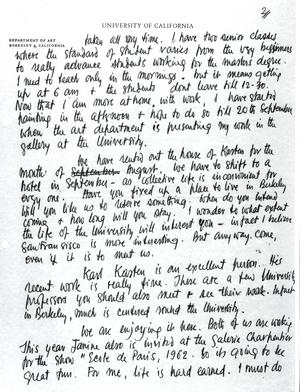 UNIVERSITY OF CALIFORNIA
DEPARTMENT OF ART
BERKELEY 4, CALIFORNIA
taken all my time. I have two senior classes
where the standard of student varies from the very beginners
to really advance students working for the masters degree.
I need to teach only in the mornings. but it means getting
up at 6 am & the students dont leave till 12-30.
Now that I am more at home, with work, I have started
painting in the afternoon & hope to do so till 20th September
when the art department is presenting my work in the
gallery at the University.
We have rented out the house of Karsten for the
month of August. We have to shift to a
hotel in September - as collective life is inconvenient for
every one. Have you fixed up a place to live in Berkeley
will you like us to reserve something. When do you intend
coming & how long will you stay. I wonder to what extent
the life of the University will interest you - infact I believe
San Fransisco is more interesting. But any way. Come,
even if it is to meet us.
Karl Kasten is an excellent person. His
recent work is really fine. There are a few University
professors you should also meet & see their work. Infact
in Berkeley, much is centred round the University.
We are enjoying it here. Both of us are working
This year Janine also is invited at the Galerie Charpentier
for the show "Ecole de Paris, 1962. So its going to be
great fun. For me, life is hard earned. I must do